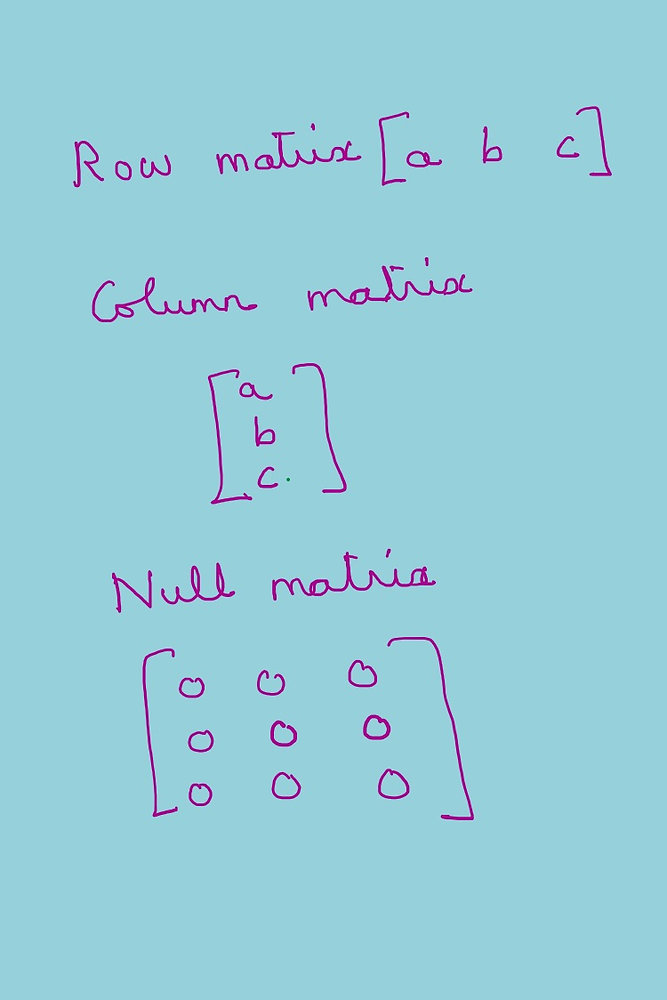 Row matrix [a b c]
Column matrix
[a
b
c.]
Null matrix
[0 0 0
0 0 0
0 0 0]